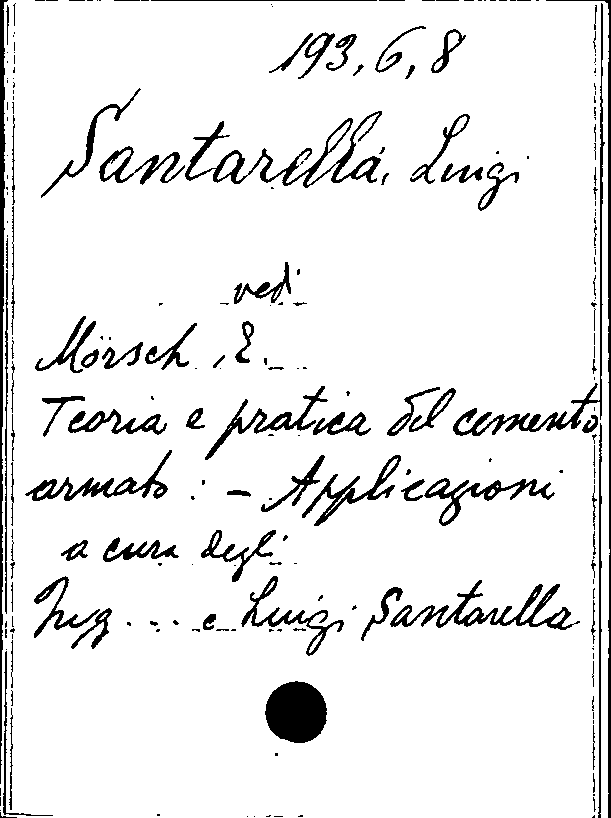 193,6,8
Santarella, Luigi
vedi
Mörsch, E.
Teoria e pratica del cemento
armato: - Applicazioni
a cura degli
Ing ... e Luigi Santarella